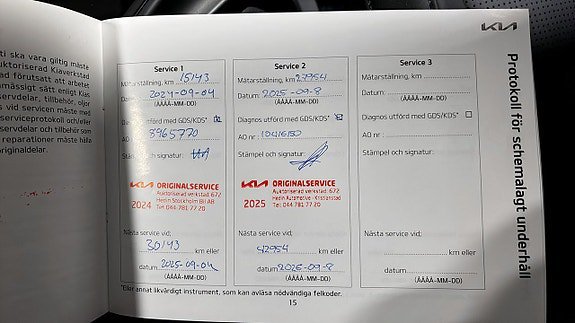 ti ska vara giltig måste
uktoriserad Kiaverkstad
ad förutsatt att arbetet
servdelar, tillbehör, oljor
vid servicen måste med
serviceprotokoll och/eller
rvdelar och tillbehör som
reparationer måste hålla
originaldelar.
KIA
Protokoll för schemalagt underhåll
Service 1
Mätarställning, km 15143
Datum: 2024-09-04
(ÅÅÅÅ-MM-DD)
Diagnos utförd med GDS/KDS*
3965770
Stämpel och signatur:
KIA ORIGINALSERVICE
Auktoriserad verkstad 672
Hedin Stockholm Bil AB
2024 Tel 044-781 77 20
Nästa service vid;
30143 km eller
datum 2025-09-04
(ÅÅÅÅ-MM-DD)
Service 2
Mätarställning, km 27954
Datum: 2025-09-8
(ÅÅÅÅ-MM-DD)
Diagnos utförd med GDS/KDS*
AO nr :
Stämpel och signatur:
KIA ORIGINALSERVICE
Auktoriserad verkstad 672
Hedin Automotive - Kristianstad
2025 Tel 044-781 77 20
Nästa service vid;
42954 km eller
datum 2026-09-8
(ÅÅÅÅ-MM-DD)
Service 3
Mätarställning, km
Datum:
(ÅÅÅÅ-MM-DD)
Diagnos utförd med GDS/KDS*
AO nr :
Stämpel och signatur:
Nästa service vid;
km eller
datum
(ÅÅÅÅ-MM-DD)
*Eller annat likvärdigt instrument, som kan avläsa nödvändiga felkoder.
15